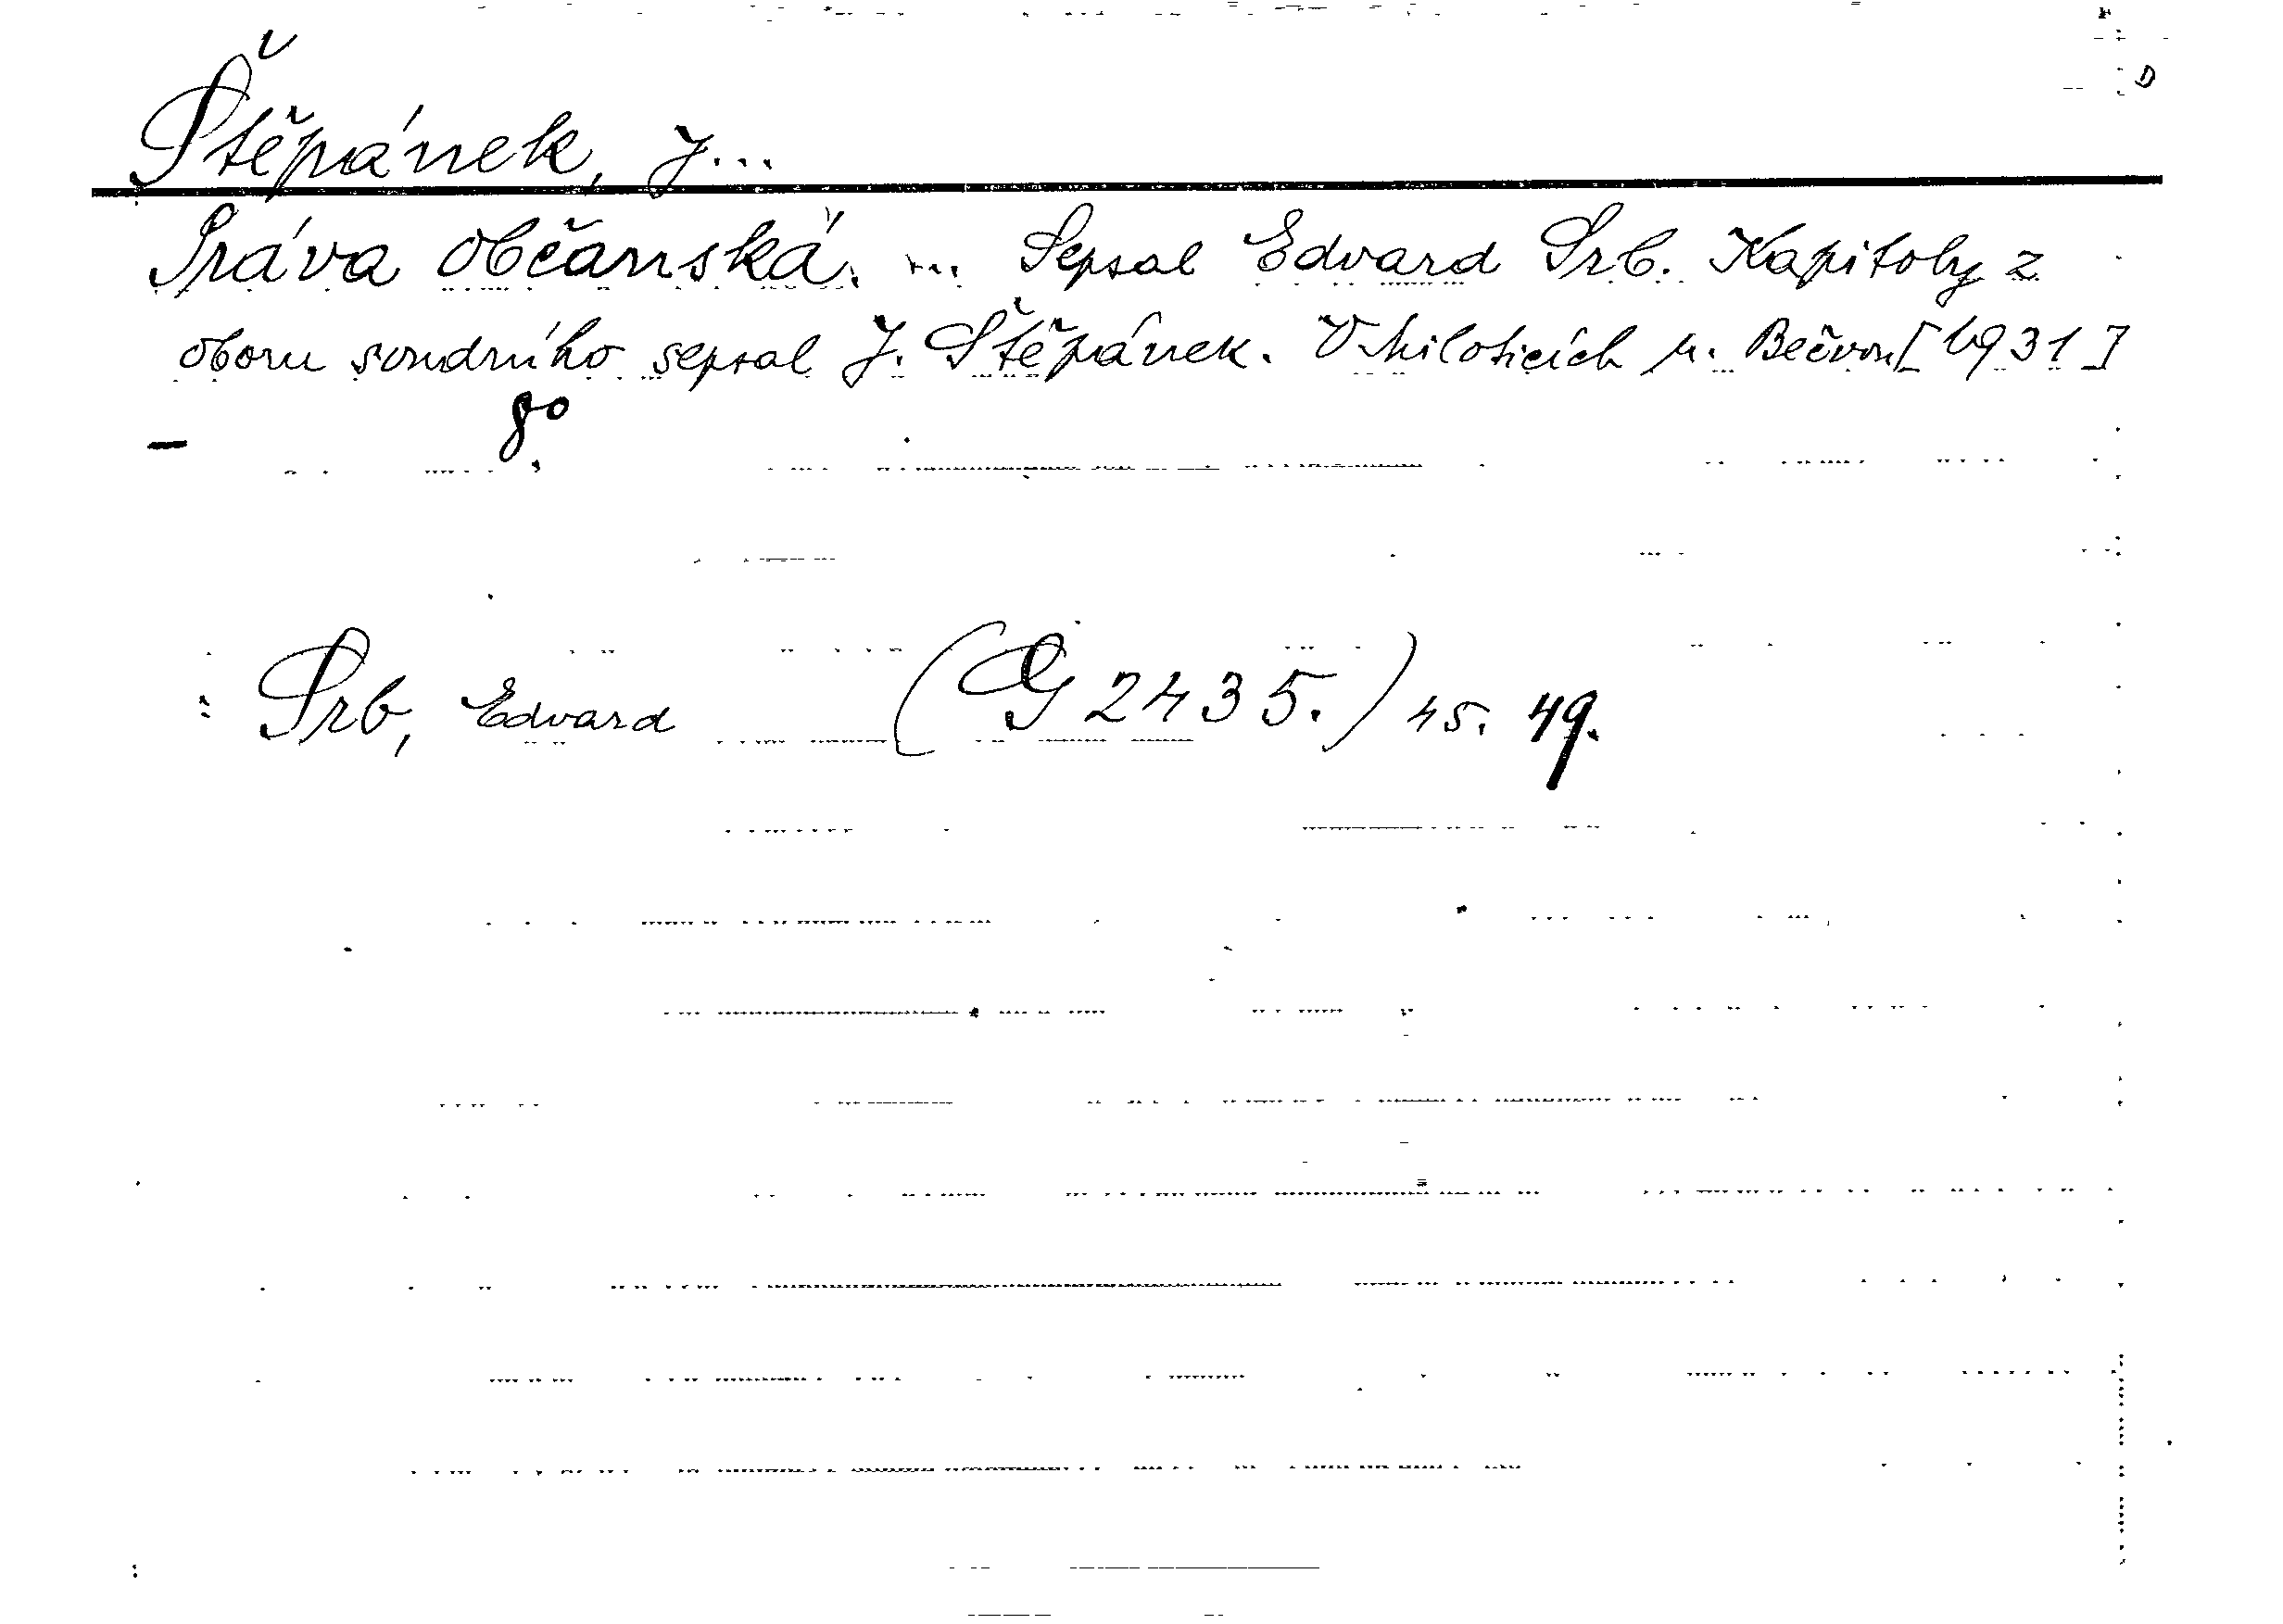 D
Štěpánek, J...
Práva občanská. ... Sepsal Edvard Srb. Kapitoly z
oboru soudního sepsal J. Štěpánek. V Miloticích n. Bečvou [1931]
– 8°
: Srb, Edvard (G 2435.) 45. 49.